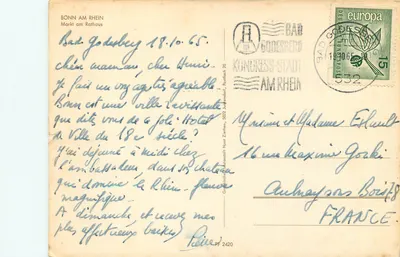 BONN AM RHEIN
Markt mit Rathaus
Bad Godesberg 18.10.65.
chère maman, cher Henri-
Je fais un voyage très agréable
Bonn est une ville ravissante
que dites vous de ce joli Hotel
de Ville du 18e siècle?
J'ai déjeuné à midi chez
l'ambassadeur dans son chateau
qui domine le Rhin - fleuve
magnifique.
A dimanche et recevez mes
plus affectueux baisers
Pierre
2420
BAD
GODESBERG
KONGRESS-STADT
AM RHEIN
BAD GODESBERG
532
europa
15
Monsieur et Madame
16 rue Maxime Gorki
Aulnay sous Bois 78
FRANCE